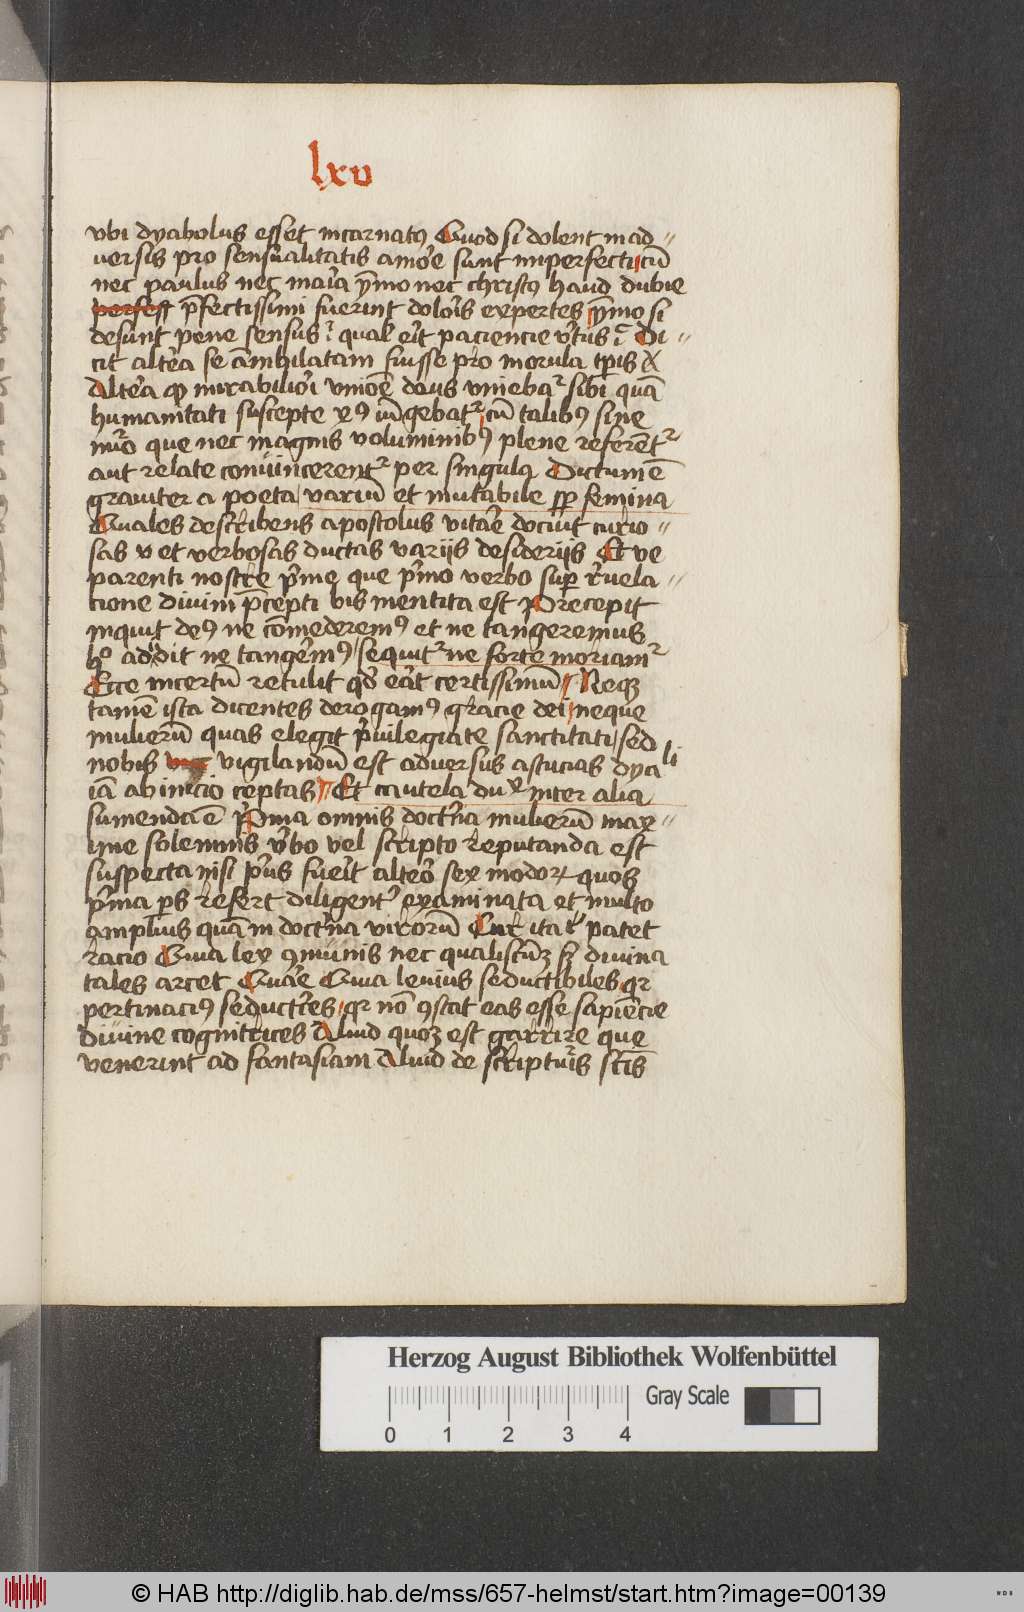 lxv
vbi dyabolus esset incarnatꝰ Quod si dolent in ad〃
uersis pro sensualitatis amoꝛe sunt imperfecti cū
nec paulus nec maria ẏmo nec christꝰ haud dubie
perfess p̄fectissimi fuerint dolois expertes ẏmo si
desunt pene sensus qual eit paciencie Di〃
cit altea se āmhilatam fuisse pro morula tp̄is
Altea mirabiliori vnioē deus vnieba sibi quā
humanitati suscepte cū talibꝰ sine
nūo que nec magnis voluminibꝰ plene referēt
aut relate conuincerent per singula Dictum ē
grauiter a poeta variū et mutabile semina
Quales describens apostolus vitae docuit curio〃
sas v et verbosas ductas varijs desiderijs Et ve
parenti nostre pme que pmo verbo sup reuela〃
cione diuini p̄cepti bis mentita est Precepit
inquit deꝰ ne cōmederemꝰ et ne tangeremus
hō addidit ne tangemꝰ sequit ne forte moriam
Ecce incertū retulit qd eat certissimū Neqꝫ
tamē ista dicentes derogamꝰ gracie dei neque
mulierū quas elegit puilegiate sanctitati sed
nobis vig vigilandū est aduersus astucias dyaboli
iā ab inicio ceptas Et cautela du inter alia
sumenda ē Pma omnis doctna mulierū max〃
ime solennis vbo vel scripto reputanda est
suspecta nisi pus fueit alteo sex modoꝝ quos
pma ps refert diligent examinata et multo
amplius quā in doctna virorū Cur ita patet
racio Quia lex ꝯmunis nec qualiscūꝫ sꝫ diuina
tales arcet Quae Quia leuius seductibiles qꝛ
pertinaciꝰ seductces qꝛ nō ꝯstat eas esse sapiēcie
diuine cognitrices Aliud quoꝫ est garrire que
venerint ad fantasiam Aliud de scriptus scīs
Herzog August Bibliothek Wolfenbüttel
Gray Scale
0 1 2 3 4
© HAB http://diglib.hab.de/mss/657-helmst/start.htm?image=00139